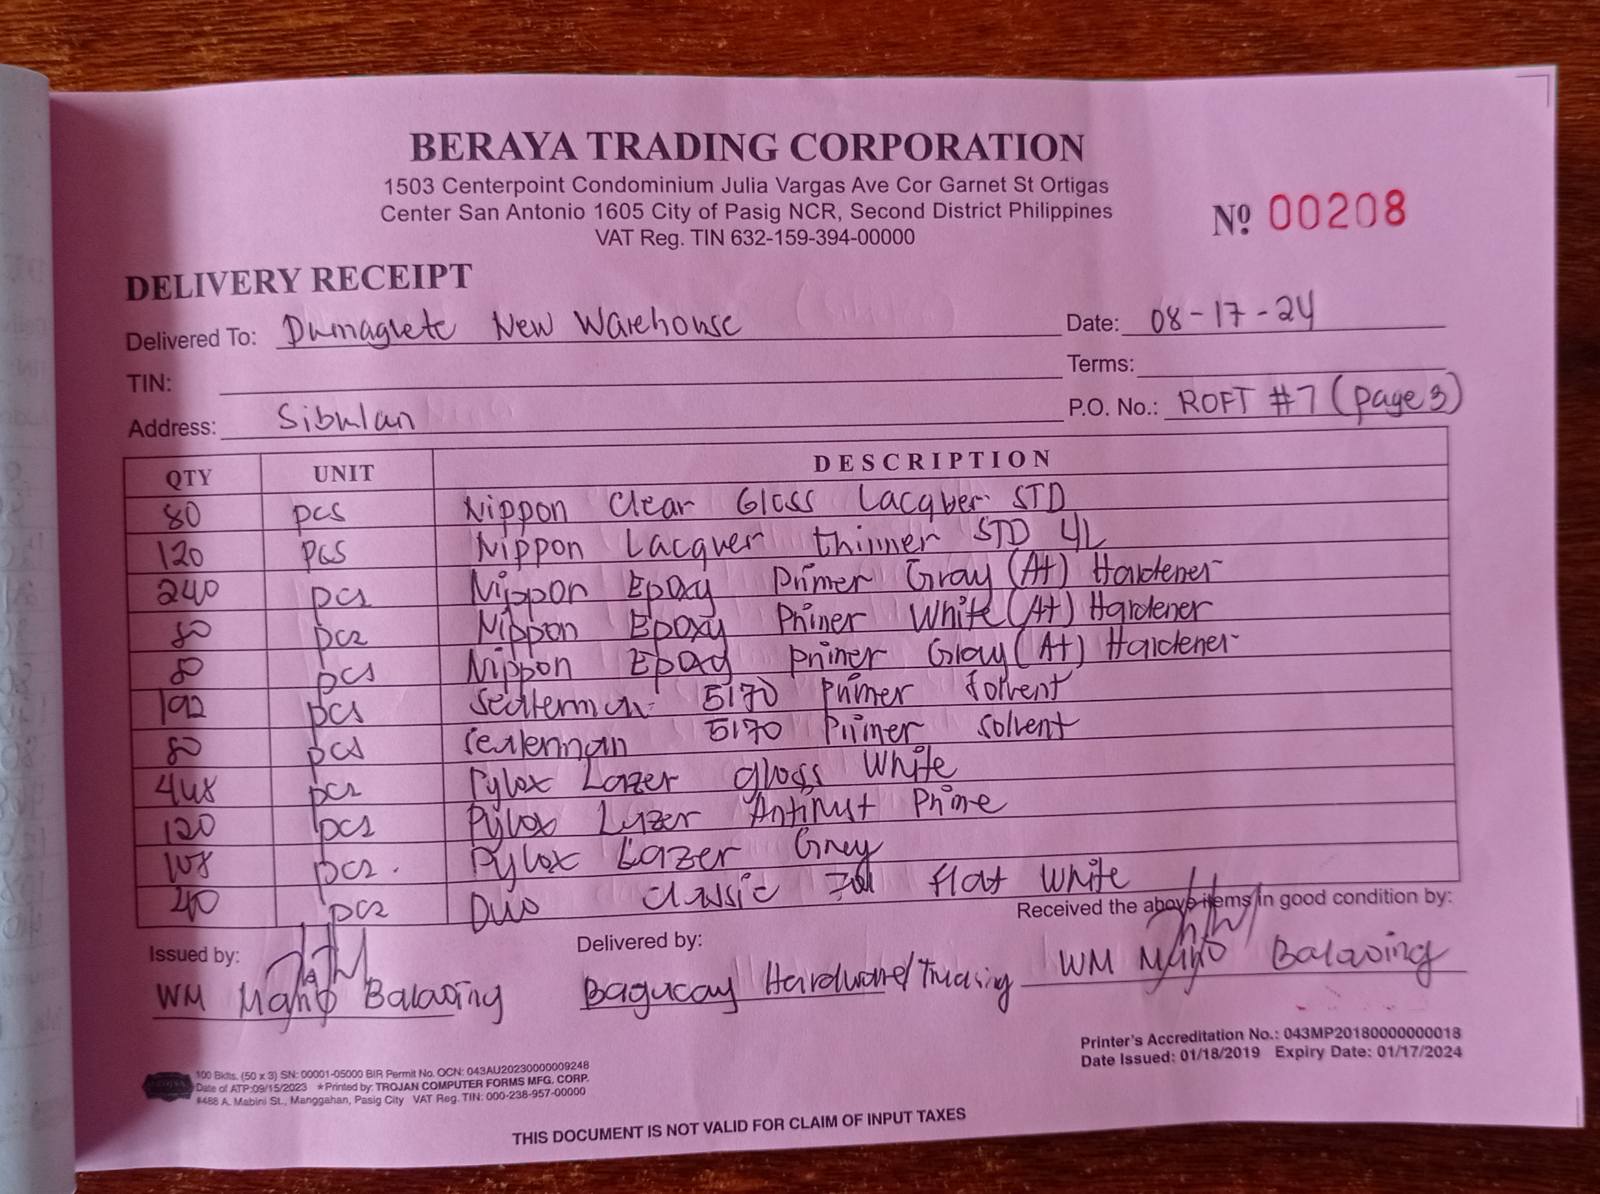 BERAYA TRADING CORPORATION
1503 Centerpoint Condominium Julia Vargas Ave Cor Garnet St Ortigas
Center San Antonio 1605 City of Pasig NCR, Second District Philippines
VAT Reg. TIN 632-159-394-00000
Nº 00208
DELIVERY RECEIPT
Delivered To: Dumaguete New Warehouse Date: 08-17-24
TIN: Terms:
Address: Sibulan P.O. No.: ROFT #7 (page 3)
QTY UNIT DESCRIPTION
80 pcs Nippon Clear Gloss Lacquer STD
120 pcs Nippon Lacquer thinner STD 4L
240 pcs Nippon Epoxy Primer Gray (A+) Hardener
80 pcs Nippon Epoxy Primer White (A+) Hardener
80 pcs Nippon Epoxy Primer Gray (A+) Hardener
192 pcs 5170 Primer Solvent
80 pcs 5170 Primer Solvent
448 pcs Pylox Lazer gloss White
120 pcs Pylox Lazer Antirust Prime
108 pcs. Pylox Lazer Grey
40 pcs Duo Classic flat White
Received the above items in good condition by:
Issued by: Delivered by:
WM Balaoing Hardware/Trucking WM Balaoing
Printer's Accreditation No.: 043MP20180000000018
Date Issued: 01/18/2019 Expiry Date: 01/17/2024
100 Bklts. (50 x 3) SN: 00001-05000 BIR Permit No. OCN: 043AU20230000009248
Date of ATP:09/15/2023 *Printed by: TROJAN COMPUTER FORMS MFG. CORP.
#488 A. Mabini St., Manggahan, Pasig City VAT Reg. TIN: 000-238-957-00000
THIS DOCUMENT IS NOT VALID FOR CLAIM OF INPUT TAXES